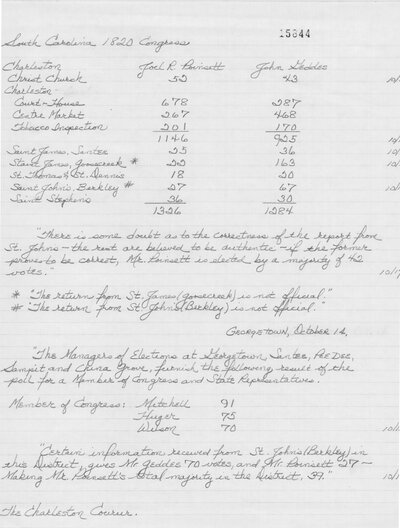 15844
South Carolina 1820 Congress
Charleston Joel R. Poinsett John Geddes
Christ Church 52 43 10/
Charleston-
Court-House 678 287
Centre Market 267 468
Tobacco Inspection 201 170
1146 925 10/
Saint James, Santee 25 36 10/
Saint James, Goosecreek * 22 163 10/
St. Thomas & St. Dennis 18 20
Saint John's, Berkley # 27 67 10/
Saint Stephens 36 30
1326 1284
"There is some doubt as to the correctness of the report from
St. Johns - the rest are believed to be authentic - if the former
proves to be correct, Mr. Poinsett is elected by a majority of 42
votes." 10/1
* "The return from St. James (Goosecreek) is not official."
# "The return from St. John's (Berkley) is not official."
Georgetown, October 14,
"The Managers of Elections at Georgetown, Santee, Pee Dee,
Sampit and China Grove, furnish the following result of the
poll for a Member of Congress and State Representatives.
Member of Congress: Mitchell 91
Huger 75
Wilson 70 10/
"Certain information received from St. John's (Berkley) in
this District, gives Mr. Geddes 70 votes, and Mr. Poinsett 27 -
Making Mr. Poinsett's total majority in the District, 39." 10/1
The Charleston Courier.